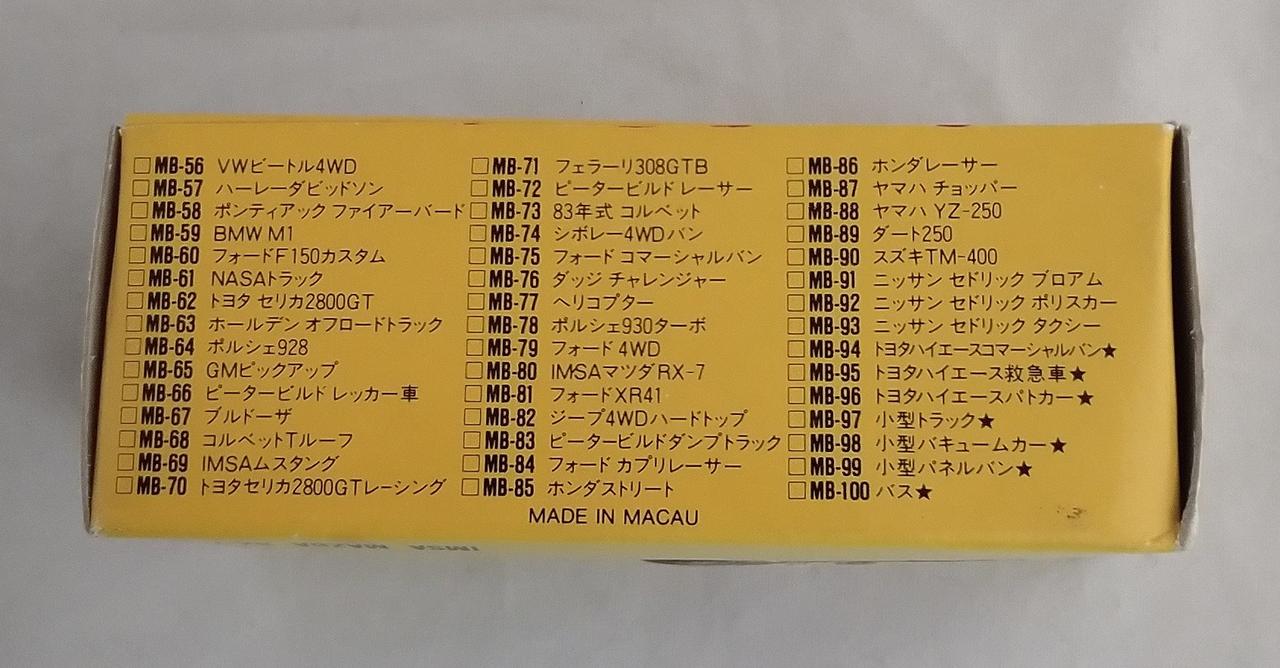 □MB-56 VWビートル4WD
□MB-57 ハーレーダビッドソン
□MB-58 ポンティアック ファイアーバード
□MB-59 BMW M1
□MB-60 フォードF150カスタム
□MB-61 NASAトラック
□MB-62 トヨタ セリカ2800GT
□MB-63 ホールデン オフロードトラック
□MB-64 ポルシェ928
□MB-65 GMピックアップ
□MB-66 ピータービルド レッカー車
□MB-67 ブルドーザ
□MB-68 コルベットTルーフ
□MB-69 IMSAムスタング
□MB-70 トヨタセリカ2800GTレーシング
□MB-71 フェラーリ308GTB
□MB-72 ピータービルド レーサー
□MB-73 83年式 コルベット
□MB-74 シボレー4WDバン
□MB-75 フォード コマーシャルバン
□MB-76 ダッジ チャレンジャー
□MB-77 ヘリコプター
□MB-78 ポルシェ930ターボ
□MB-79 フォード 4WD
□MB-80 IMSAマツダRX-7
□MB-81 フォードXR41
□MB-82 ジープ4WDハードトップ
□MB-83 ピータービルドダンプトラック
□MB-84 フォード カプリレーサー
□MB-85 ホンダストリート
□MB-86 ホンダレーサー
□MB-87 ヤマハ チョッパー
□MB-88 ヤマハ YZ-250
□MB-89 ダート250
□MB-90 スズキTM-400
□MB-91 ニッサン セドリック ブロアム
□MB-92 ニッサン セドリック ポリスカー
□MB-93 ニッサン セドリック タクシー
□MB-94 トヨタハイエースコマーシャルバン★
□MB-95 トヨタハイエース救急車★
□MB-96 トヨタハイエースパトカー★
□MB-97 小型トラック★
□MB-98 小型バキュームカー★
□MB-99 小型パネルバン★
□MB-100 バス★
MADE IN MACAU